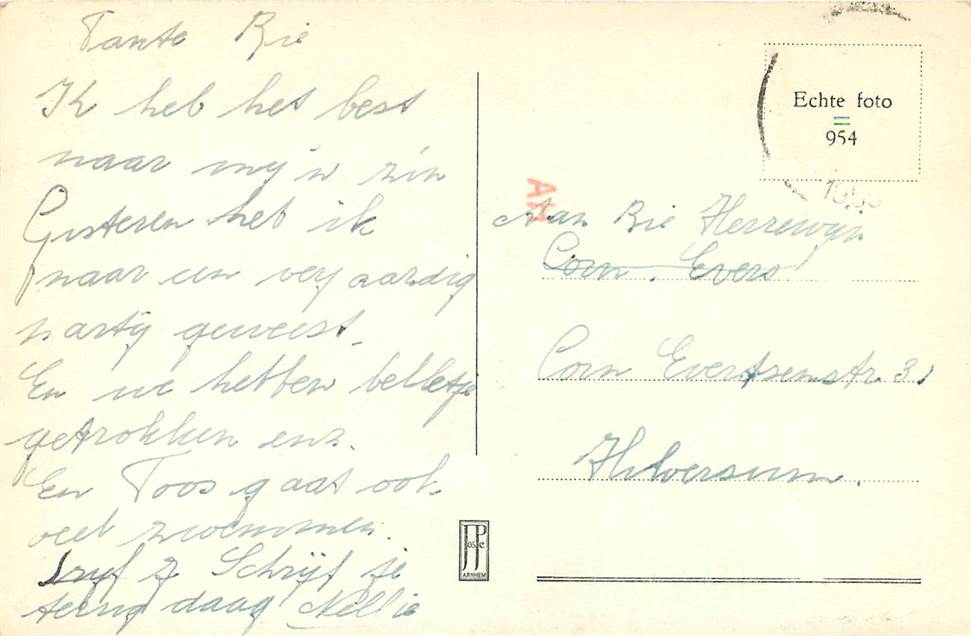 Tante Rie
Ik heb het best
naar mijn zin
Gisteren heb ik
naar een verj aardig
partij geweest.
En we hebben belletje
getrokken enz.
En Toos gaat ook
veel zwemmen.
Schrijf je
terug daag Nellie
Echte foto
954
AN
Aan Rie Herrewyn
Corn. Evers
Corn Evertsenstr. 31
Hilversum.
JosPe
ARNHEM